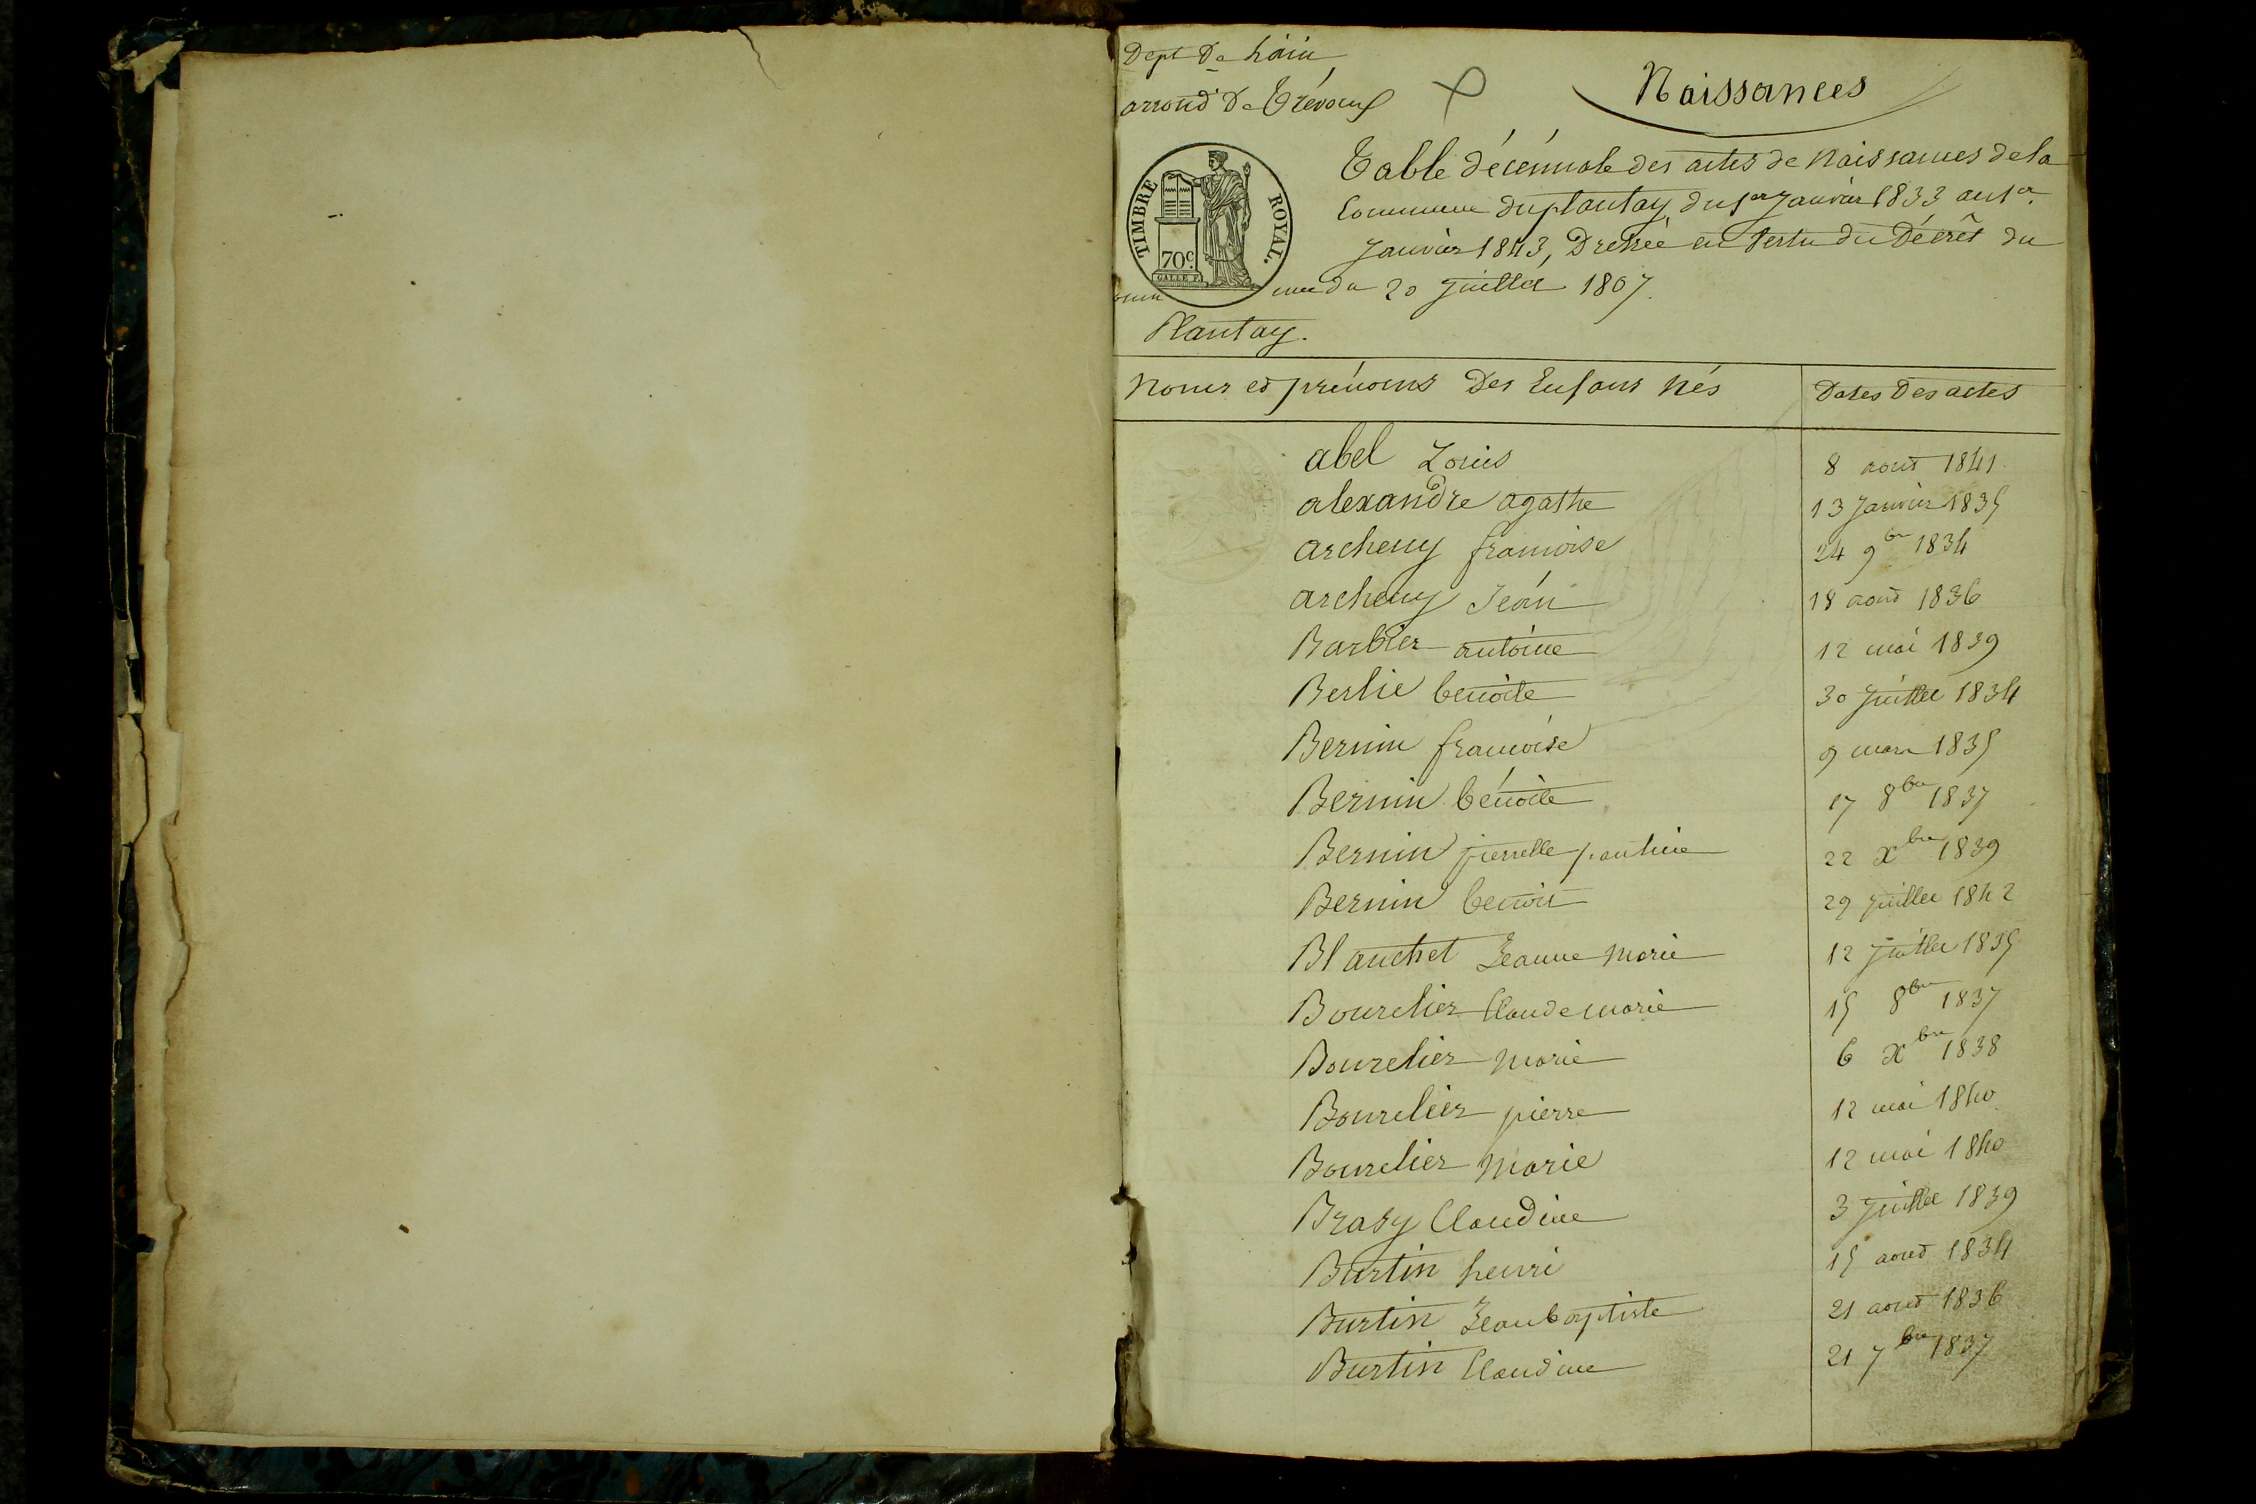 Dept De L'ain
arrond^t De Trévoux
Naissances
Table décennale des actes de Naissances de la
Commune du plantay, du 1er Janvier 1833 au 1er
Janvier 1843, Dressée en Vertu du Décrêt du
20 Juillet 1807.
TIMBRE ROYAL.
70c.
GALLE F.
Plantay.
Noms et prénoms Des Enfans Nés
Dates Des actes
abel Louis 8 aout 1841
alexandre agathe 13 Janvier 1835
archeny francoise 24 9bre 1834
archeny Jean 18 aout 1836
Barbier antoine 12 mai 1839
Berlie benoite 30 Juillet 1834
Bernin francoise 9 mars 1835
Bernin bénoite 17 8bre 1837
Bernin pierrette pauline 22 xbre 1839
Bernin benoit 29 Juillet 1842
Blanchet Jeanne Marie 12 Juillet 1835
Bourelier Claude marie 15 8bre 1837
Bourelier Marie 6 xbre 1838
Bourelier pierre 12 mai 1840
Bourelier Marie 12 mai 1840
Brasy Claudine 3 Juillet 1839
Burtin henri 15 aout 1834
Burtin Jean baptiste 21 aout 1836
Burtin Claudine 21 7bre 1837